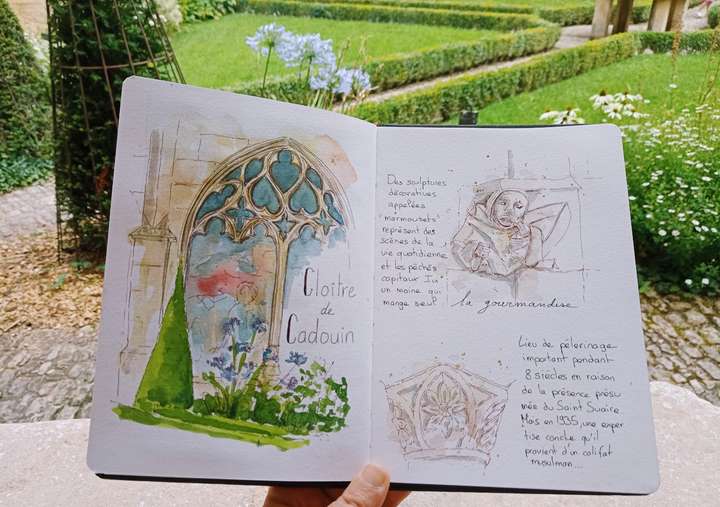 Cloître
de
Cadouin
Des sculptures
décoratives
appelées
"marmousets"
représent des
scènes de la
vie quotidienne
et les péchés
capitaux. Ici
un moine qui
mange seul
la gourmandise
Lieu de pélerinage
important pendant
8 siècles en raison
de la présence présu
mée du Saint Suaire
Mais en 1935, une exper
tise conclue qu'il
provient d'un califat
musulman...